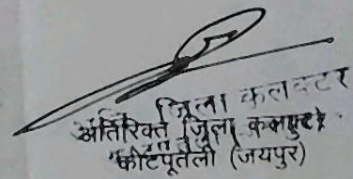 जिला कलक्टर
अतिरिक्त जिला कलक्टर
कोटपूतली (जयपुर)